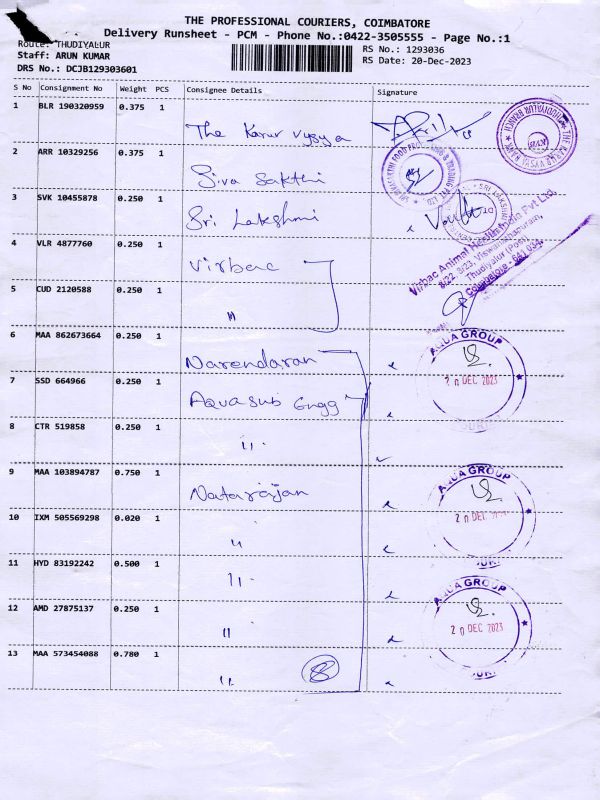 THE PROFESSIONAL COURIERS, COIMBATORE
Delivery Runsheet - PCM - Phone No.:0422-3505555 - Page No.:1
Route: THUDIYALUR
RS No.: 1293036
Staff: ARUN KUMAR
RS Date: 20-Dec-2023
DRS No.: DCJB129303601
S No Consignment No Weight PCS Consignee Details Signature
1 BLR 190320959 0.375 1 The Karur Vysya
THE KARUR VYSYA BANK
THUDIYALUR BRANCH
2 ARR 10329256 0.375 1 Siva Sakthi
3 SVK 10455878 0.250 1 Sri Lakshmi
4 VLR 4877760 0.250 1 Virbac
Virbac Animal Health India Pvt Ltd.
8/22, 8/23, Viswanathapuram,
Thudiyalur (Post),
Coimbatore - 641 034.
5 CUD 2120588 0.250 1 "
6 MAA 862673664 0.250 1 Narendaran
AQUA GROUP
20 DEC 2023
7 SSD 664966 0.250 1 Aquasub Engg
8 CTR 519858 0.250 1 "
9 MAA 103894787 0.750 1 Natarajan
AQUA GROUP
20 DEC
10 IXM 505569298 0.020 1 "
11 HYD 83192242 0.500 1 "
AQUA GROUP
12 AMD 27875137 0.250 1 "
20 DEC 2023
13 MAA 573454088 0.780 1 " 8